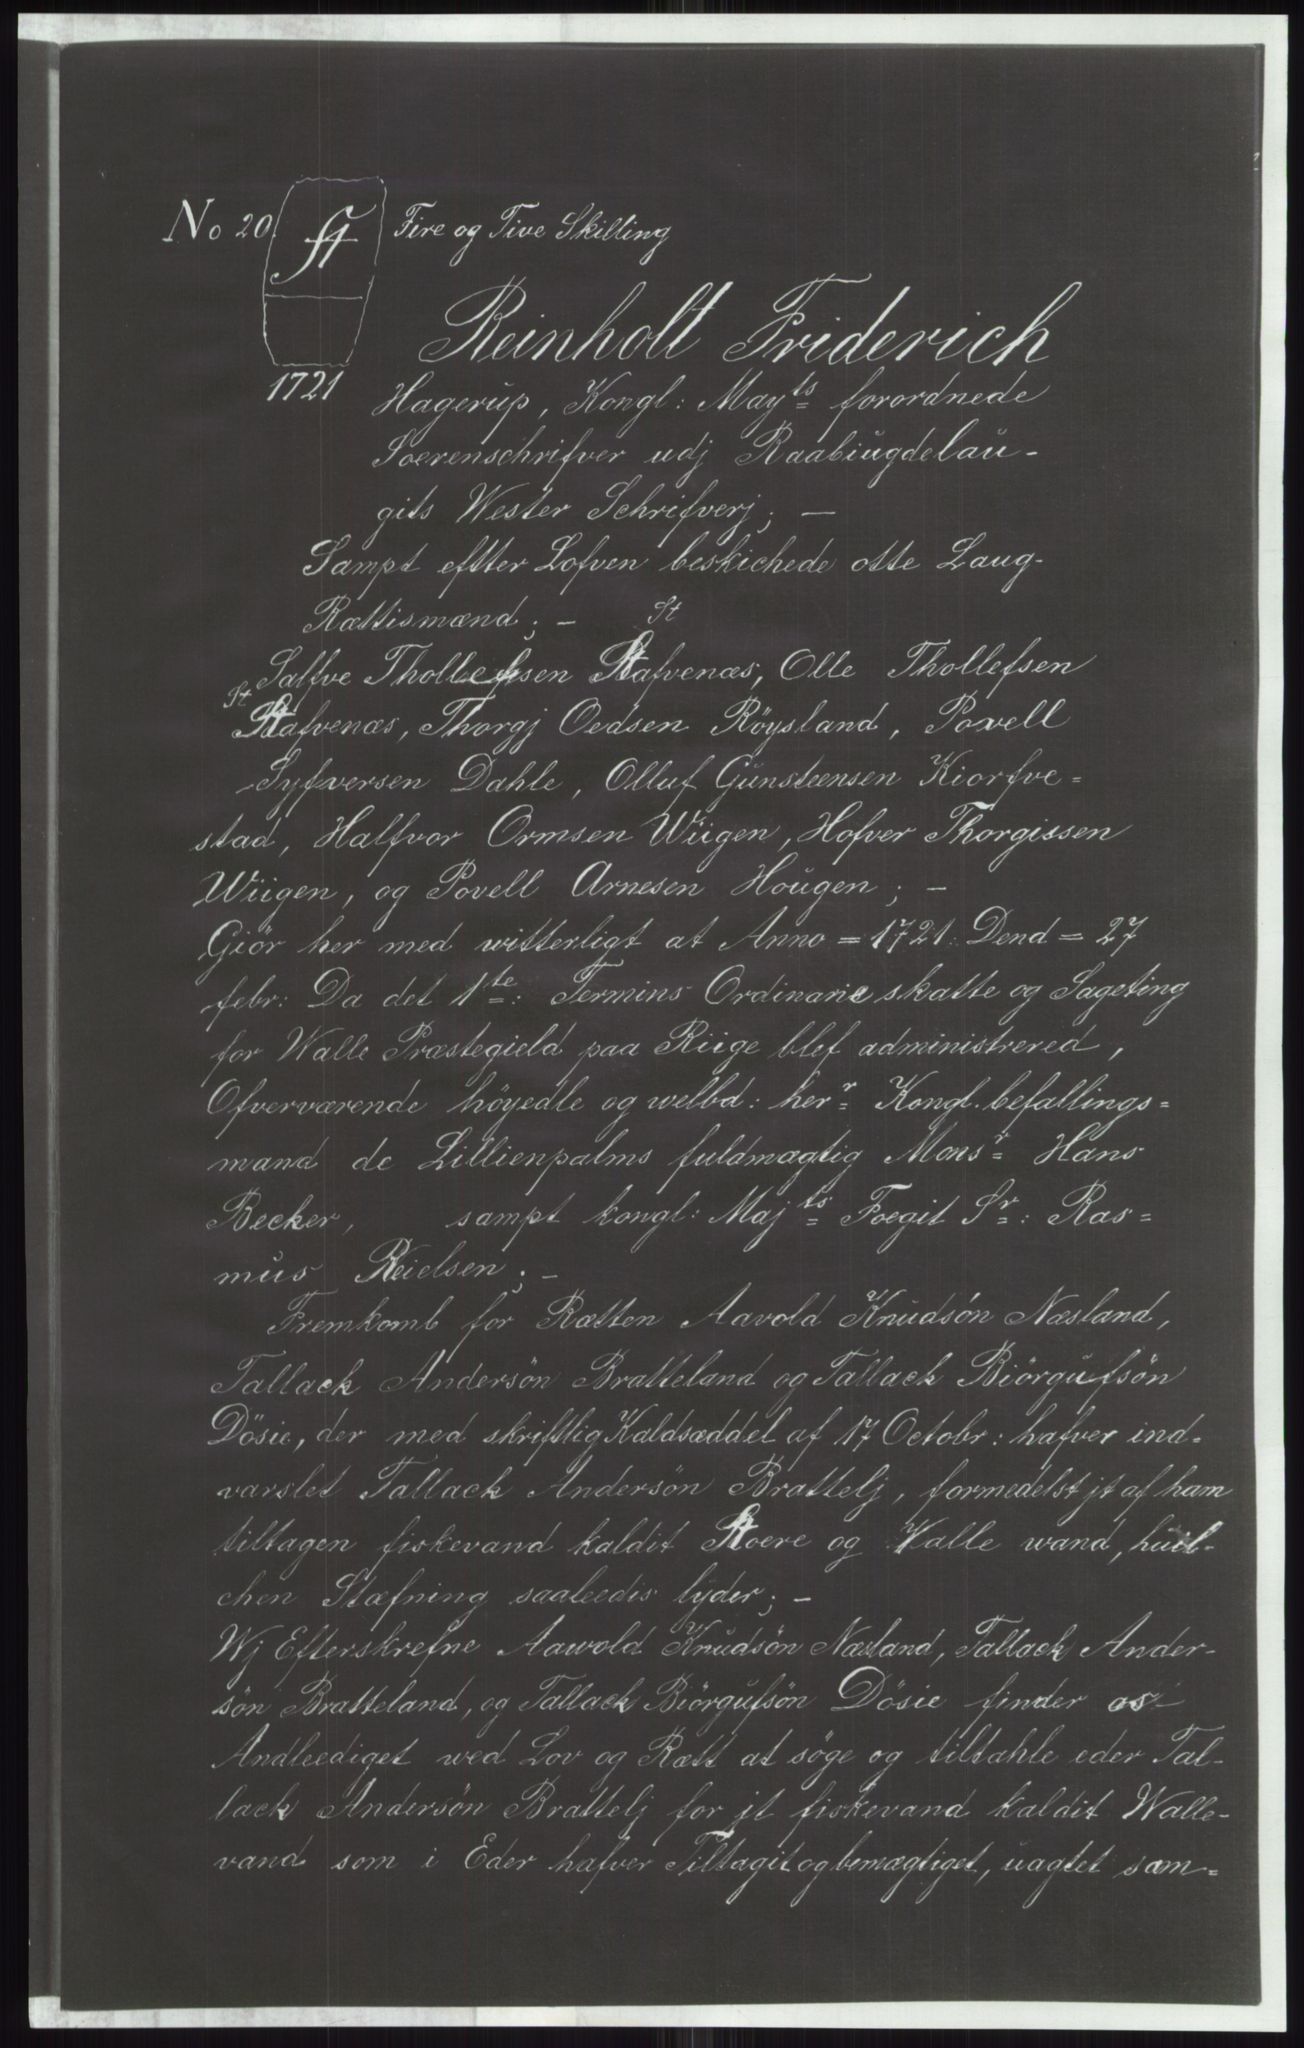 No 20 Fire og Tive Skilling
1721
Reinholt Friderich
Hagerup, Kongl: Mayts forordnede
Soerenschrifver udj Raabiugdelau-
gits Wester Schrifverj; -
Sampt efter Lofven beskichede otte Laug-
Rættismænd; -
St
Salfve Thollefsen Stafvenæs, Olle Thollefsen
St
Stafvenæs, Thorgj Oedsen Röysland, Povell
Syfversen Dahle, Olluf Gunsteensen Kiorfve=
stad, Halfvor Ormsen Wiigen, Hofver Thorgissen
Wiigen, og Povell Arnesen Hougen; -
Giör her med witterligt at Anno = 1721: Dend = 27
febr: Da det 1te: Termins Ordinarie skatte og Sageting
for Walle Præstegield paa Riige blef administrered,
Ofverværende höyedle og welbd: herr Kongl. befallings=
mand de Lillienpalms fuldmægtig Monsr Hans
Becker, sampt kongl: Majts Foegit Sr: Ras=
mus Reielsen; -
Fremkomb for Rætten Aavold Knudsön Næsland,
Tallack Andersön Bratteland og Tallack Biörgufsön
Dösie, der med skriftlig Kaldsæddel af 17 Octobr: hafver ind=
varslet Tallack Andersön Brattelj, formedelst jt af ham
tiltagen fiskevand kaldit Stoere og Walle wand, huil-
chen Stæfning saaleedis lyder; -
Wj Efterskrefne Aawold Knudsön Næsland, Tallack Ander-
sön Bratteland, og Tallack Biörgufsön Dösie finder os
Andleediget wed Lov og Rætt at söge og tiltahle eder Tal-
lack Andersön Brattelj for jt fiskevand kaldit Walle-
vand som i Eder hafver Tiltagit og bemægtiget, uagtet sam=